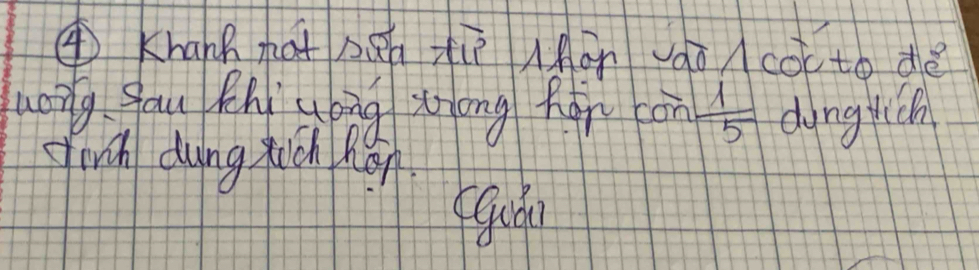 ④ Khanh rót sữa từ 1 hộp vào 1 cốc to để
uống. Sau khi uống trong hộp còn 1/5 dung tích.
tính dung tích hộp.
(Giải